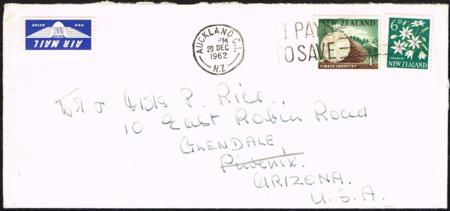 AIR MAIL
PAR AVION
AUCKLAND C.1
PM
20 DEC
1962
N.Z.
IT PAYS
TO SAVE
NEW ZEALAND
TIMBER INDUSTRY
6D
NEW ZEALAND
P. Rice.,
10 East Robin Road
GLENDALE,
Phoenix.
ARIZONA.
U.S.A.